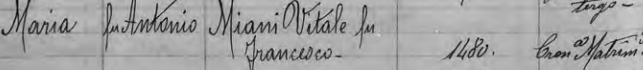 tergo -
Maria fu Antonio Miani Vitale fu
Francesco - 1480. Cron° Matrim